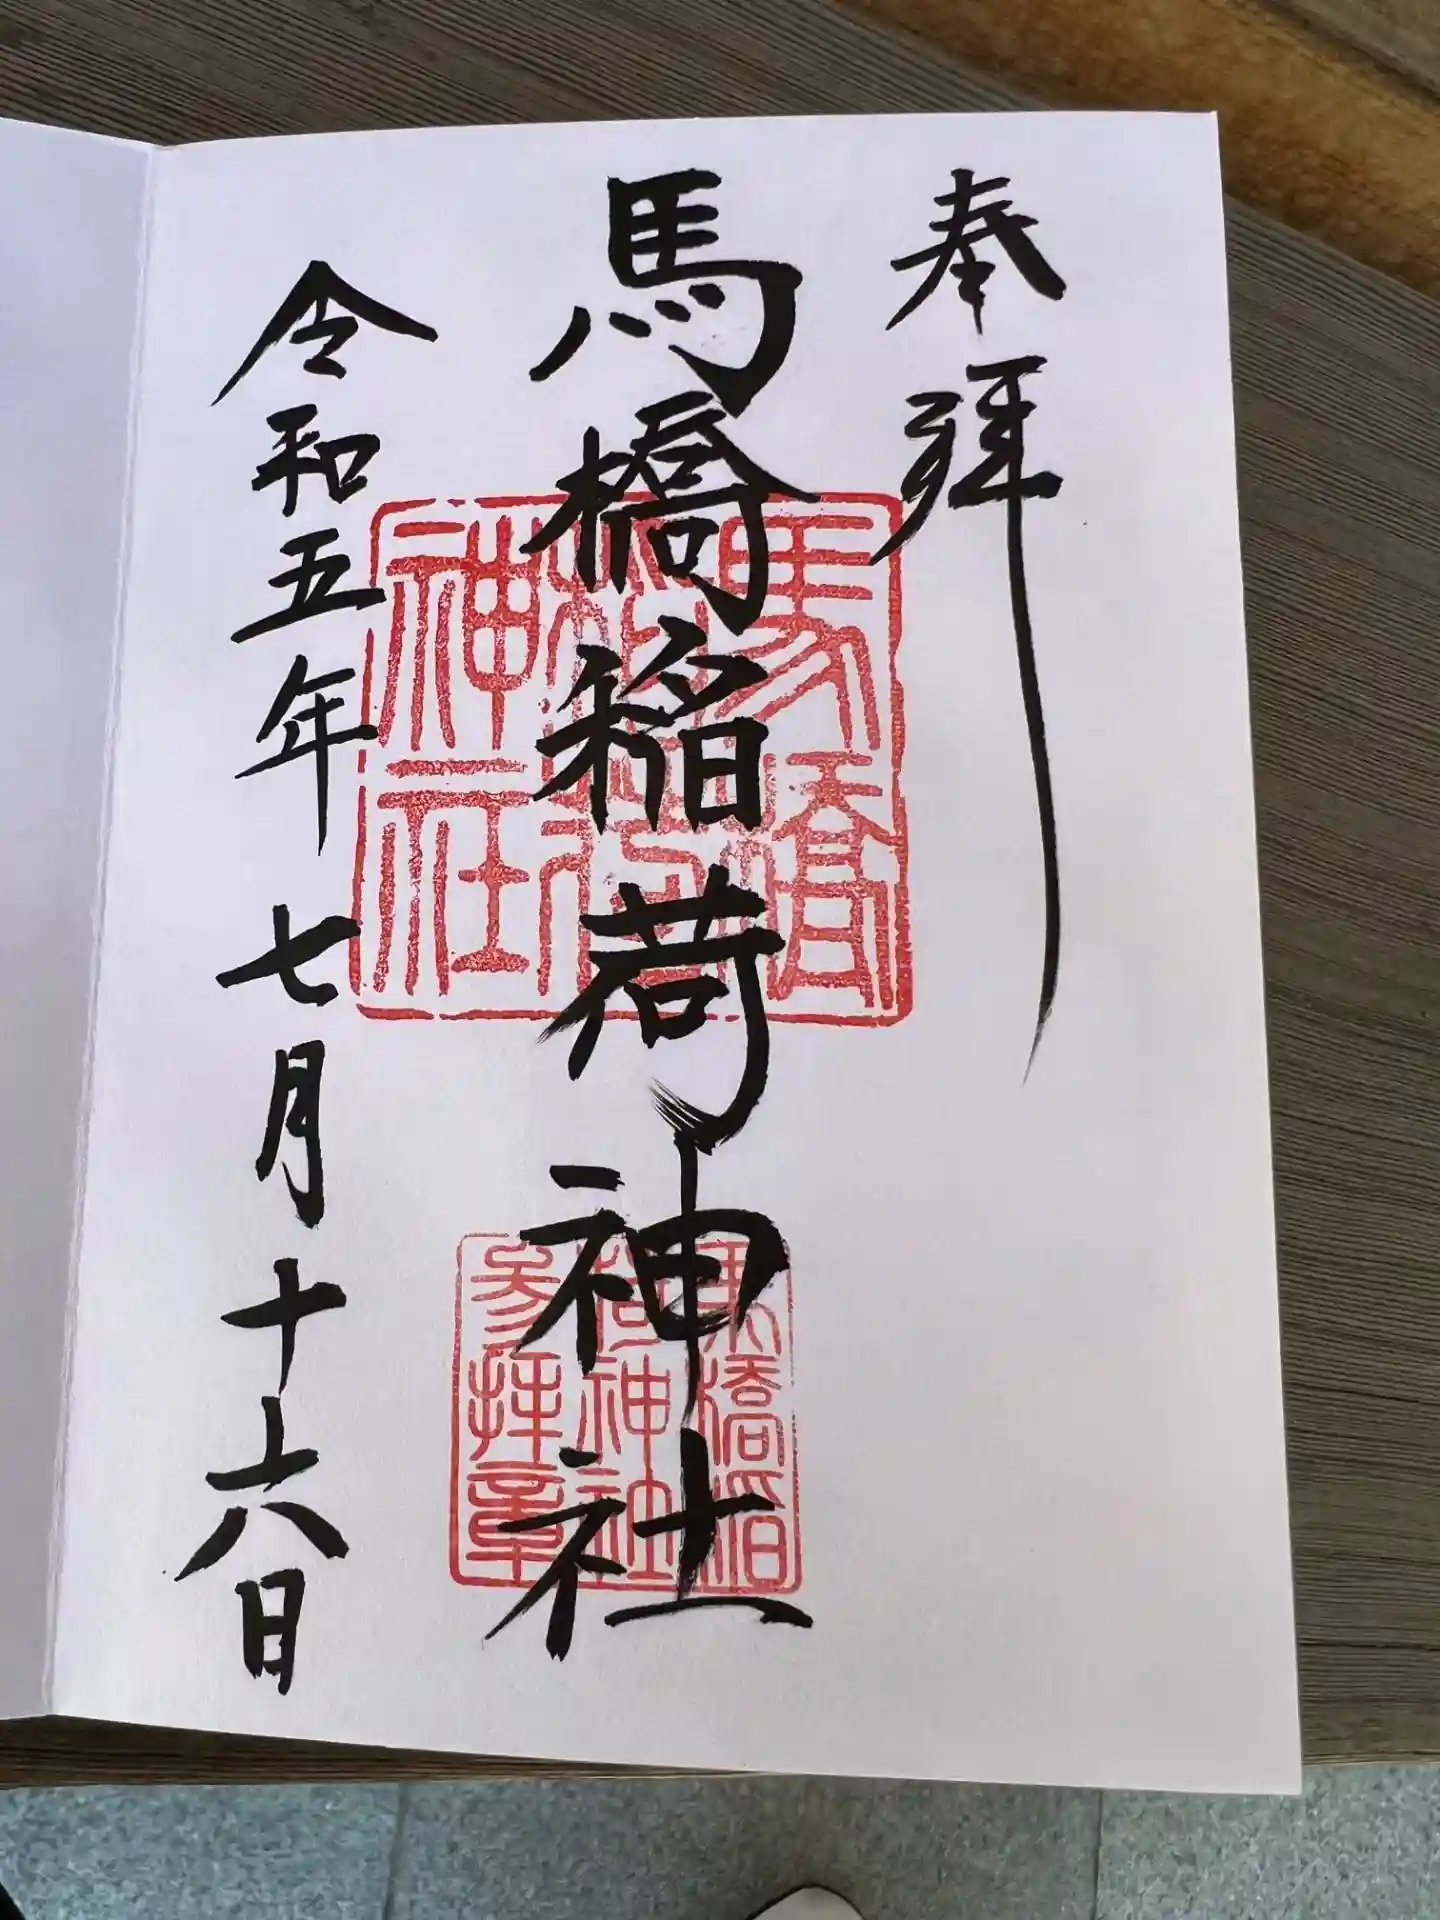 奉拜
馬橋稲荷神社
令和五年七月十六日
馬橋
稲荷
神社
馬橋稲
荷神社
参拝章